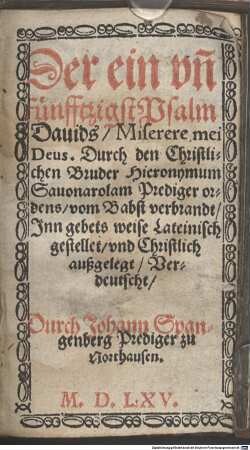 Der ein vñ
fünfftzigst Psalm
Dauids / Miserere mei
Deus. Durch den Christli-
chen Bruder Hieronymum
Sauonarolam Prediger or-
dens / vom Babst verbrandt /
Jnn gebets weise Lateinisch
gestellet / vnd Christlich
außgelegt / Ver-
deutscht /
Durch Johann Span-
genberg Prediger zu
Northausen.
M. D. LXV.